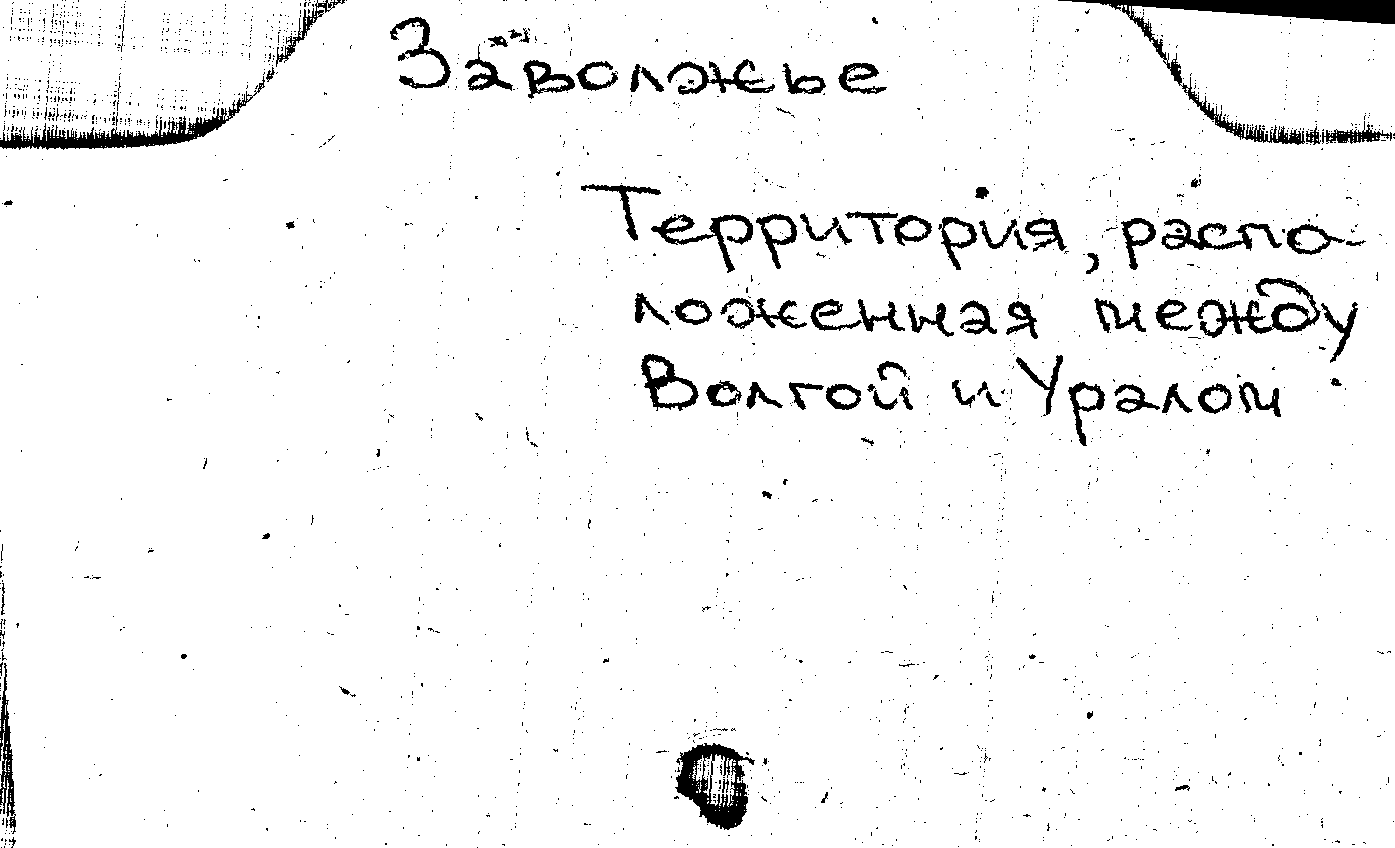 Заволжье
Территория, распо-
ложенная между
Волгой и Уралом